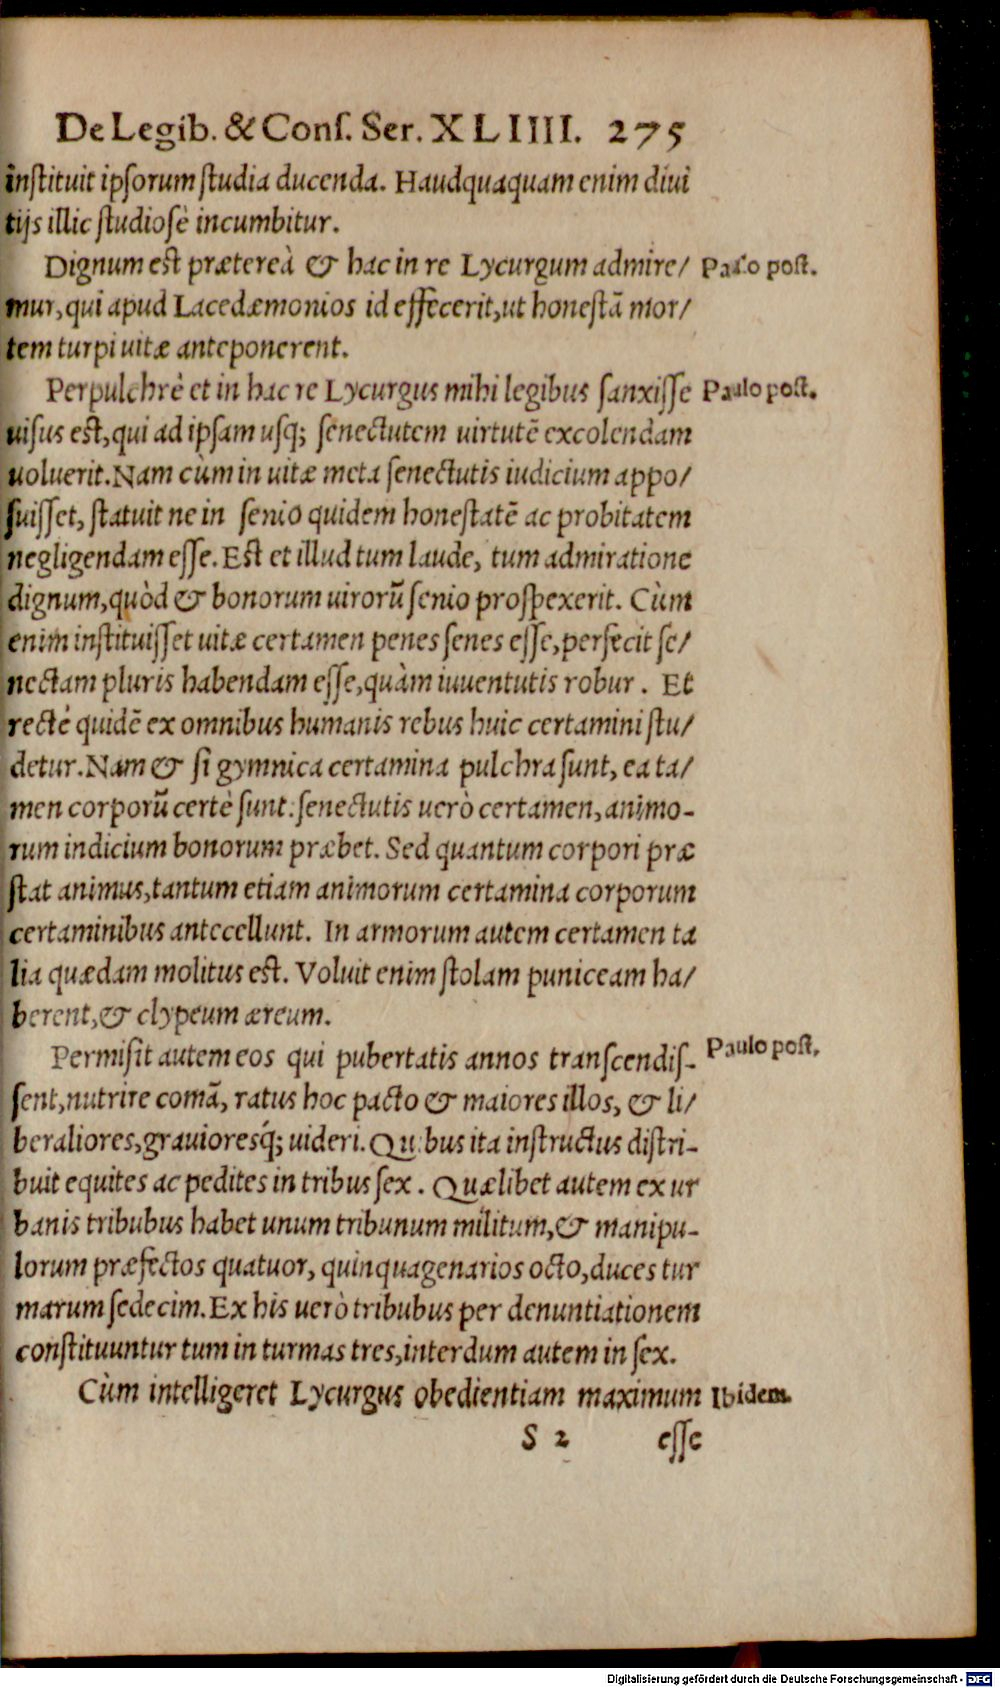 De Legib. & Conſ. Ser. XLIIII. 275
inſtituit ipſorum ſtudia ducenda. Haudquaquam enim diui
tijs illic ſtudioſè incumbitur.
Dignum est prætereà & hac in re Lycurgum admire/ Paulo post.
mur, qui apud Lacedæmonios id effecerit, ut honeſtā mor/
tem turpi uitæ anteponerent.
Perpulchrè et in hac re Lycurgus mihi legibus ſanxiſſe Paulo post.
uiſus est, qui ad ipſam uſq; ſenectutem uirtutē excolendam
uoluerit. Nam cùm in uitæ meta ſenectutis iudicium appo/
ſuiſſet, ſtatuit ne in ſenio quidem honeſtatē ac probitatem
negligendam eſſe. Est et illud tum laude, tum admiratione
dignum, quòd & bonorum uirorū ſenio proſpexerit. Cùm
enim inſtituiſſet uitæ certamen penes ſenes eſſe, perfecit ſe/
nectam pluris habendam eſſe, quàm iuuentutis robur. Et
rectè quidē ex omnibus humanis rebus huic certamini ſtu/
detur. Nam & ſi gymnica certamina pulchra ſunt, ea ta/
men corporū certè ſunt: ſenectutis uerò certamen, animo-
rum indicium bonorum præbet. Sed quantum corpori præ
ſtat animus, tantum etiam animorum certamina corporum
certaminibus antecellunt. In armorum autem certamen ta
lia quædam molitus est. Voluit enim ſtolam puniceam ha/
berent, & clypeum æreum.
Permiſit autem eos qui pubertatis annos tranſcendiſ- Paulo post.
ſent, nutrire comā, ratus hoc pacto & maiores illos, & li/
beraliores, grauioresq́; uideri. Quibus ita inſtructus diſtri-
buit equites ac pedites in tribus ſex. Quælibet autem ex ur
banis tribubus habet unum tribunum militum, & manipu-
lorum præfectos quatuor, quinquagenarios octo, duces tur
marum ſedecim. Ex his uerò tribubus per denuntiationem
conſtituuntur tum in turmas tres, interdum autem in ſex.
Cùm intelligeret Lycurgus obedientiam maximum Ibidem.
S 2 eſſe
Digitalisierung gefördert durch die Deutsche Forschungsgemeinschaft - DFG